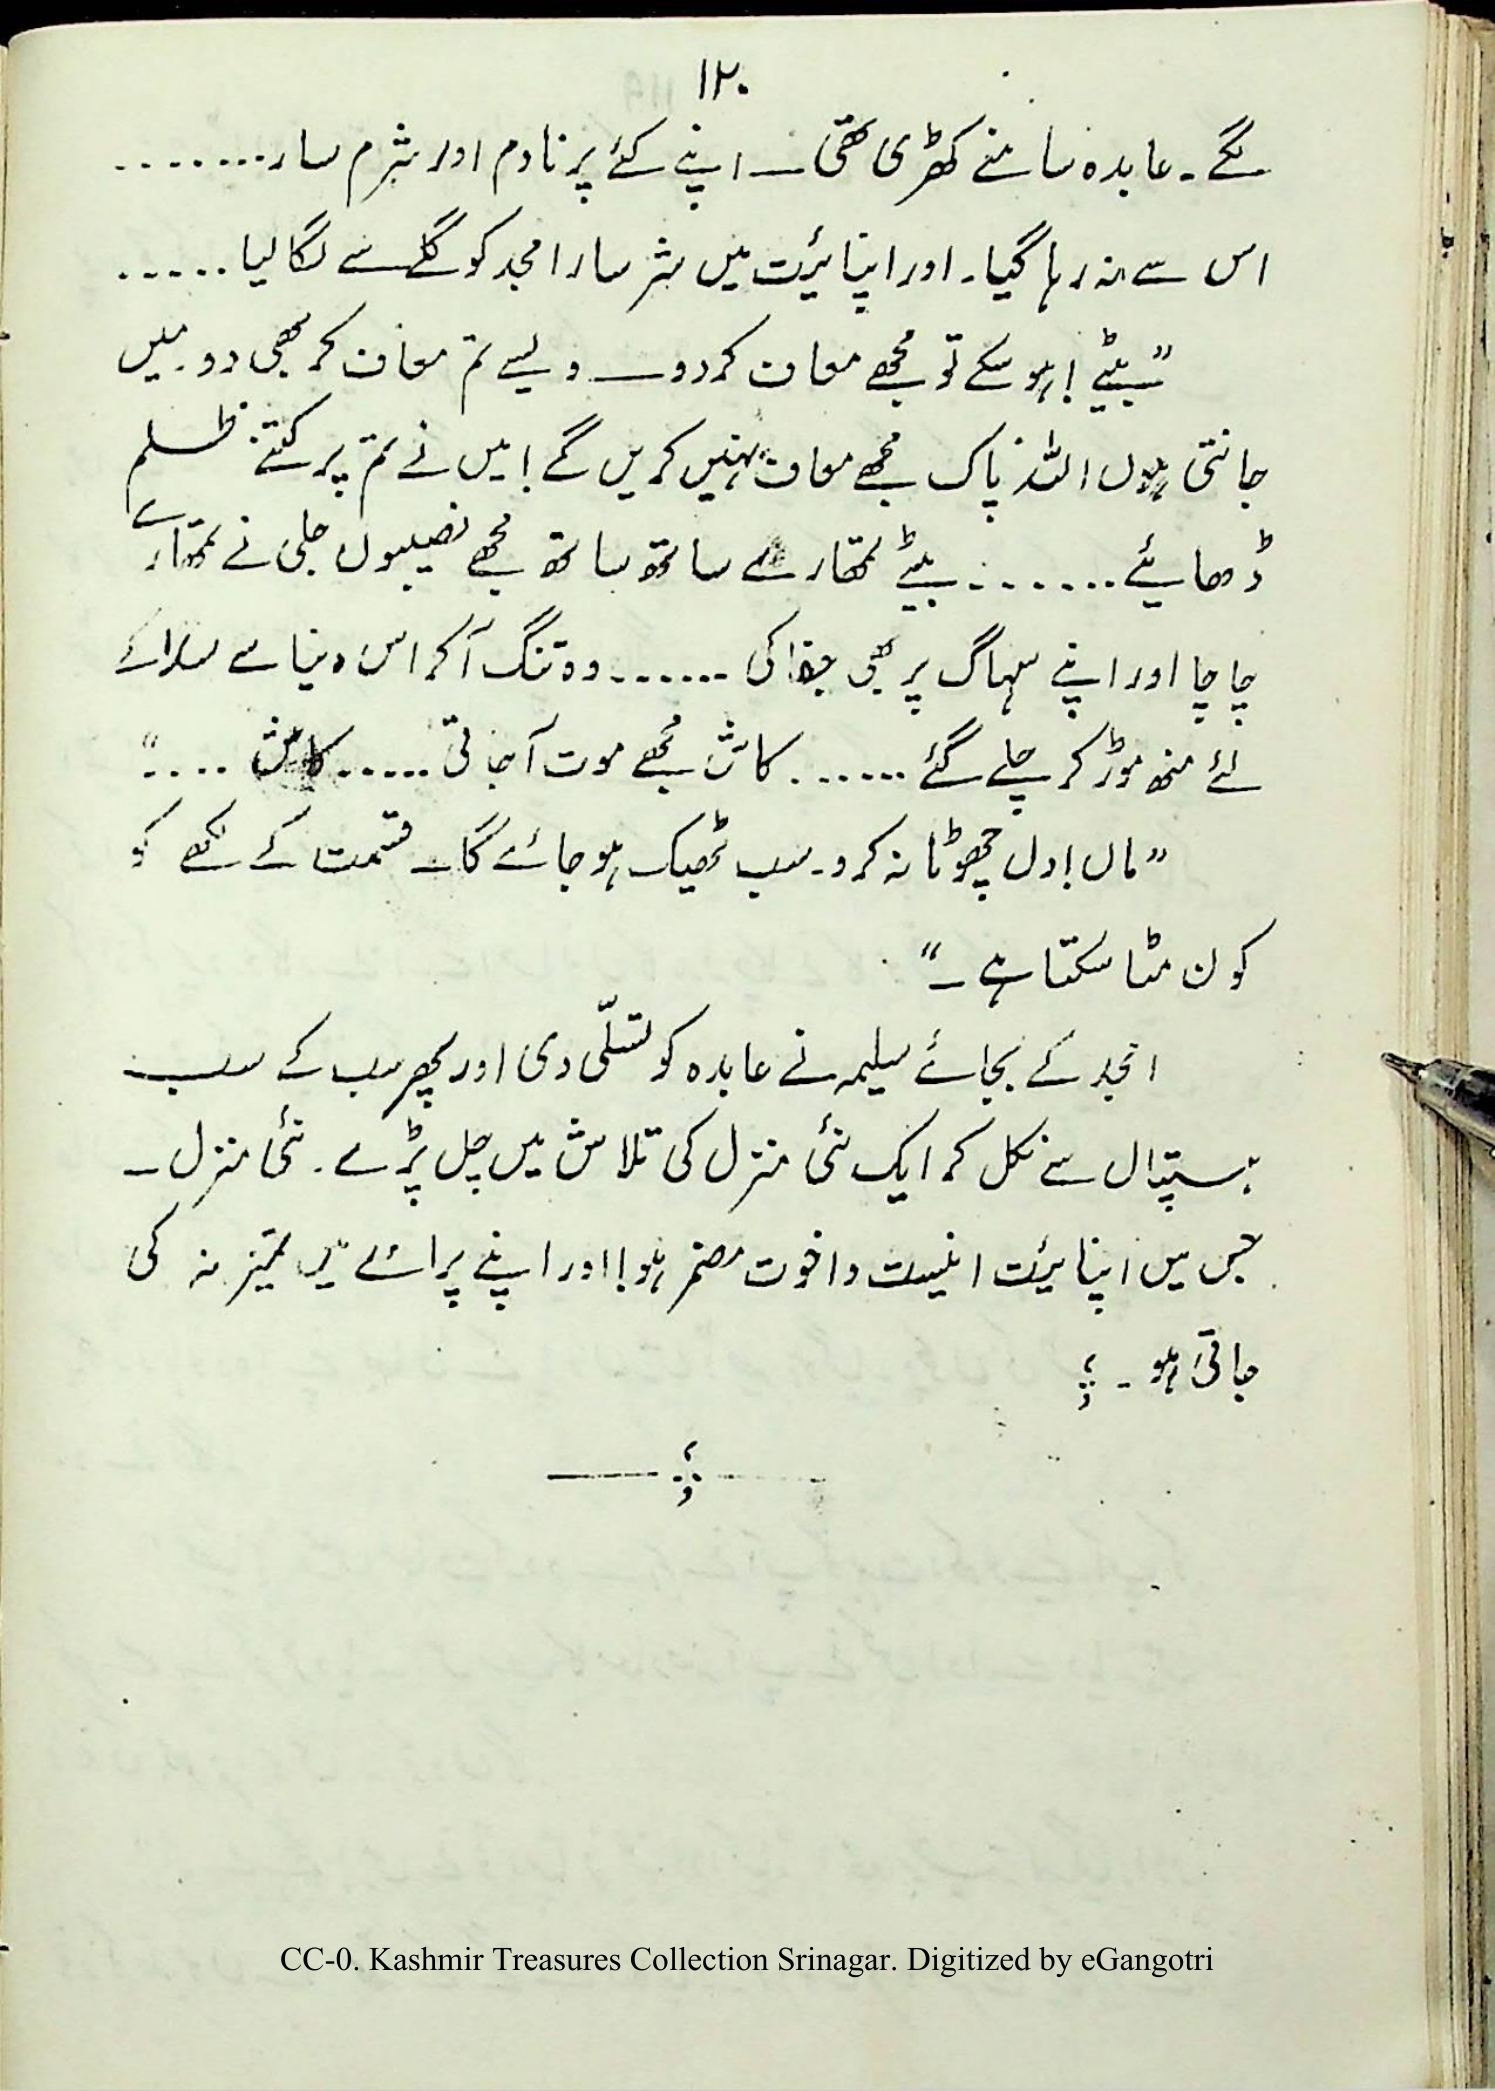 ۱۲۰
گے۔ عابدہ سامنے کھڑی تھی۔ اپنے کئے پر نادم اور شرم سار........
اس سے نہ رہا گیا۔ اور اپنائیت میں شرسار امجد کو گلے سے لگا لیا.....
”بیٹے! ہو سکے تو مجھے معاف کر دو۔ ویسے تم معاف کر بھی دو۔ میں
جانتی ہوں اللہ پاک مجھے معاف نہیں کریں گے! میں نے تم پر کتنے ظلم
ڈھائے....... بیٹے تمھارے ساتھ ساتھ مجھے نصیبوں جلی نے تمھارے
چاچا اور اپنے سہاگ پر بھی جفا کی ....... وہ تنگ آکر اس دنیا سے سدا کے
لئے منھ موڑ کر چلے گئے ...... کاش مجھے موت آجاتی ..... کاش ....“
”ماں! دل چھوٹا نہ کرو۔ سب ٹھیک ہو جائے گا۔ قسمت کے لکھے کو
کون مٹا سکتا ہے۔“
امجد کے بجائے سلیمہ نے عابدہ کو تسلّی دی اور پھر سب کے سب
ہسپتال سے نکل کر ایک نئی منزل کی تلاش میں چل پڑے۔ نئی منزل۔
جس میں اپنائیت انسیت و اخوت مضمر ہو! اور اپنے پرائے میں تمیز نہ کی
جاتی ہو۔
CC-0. Kashmir Treasures Collection Srinagar. Digitized by eGangotri